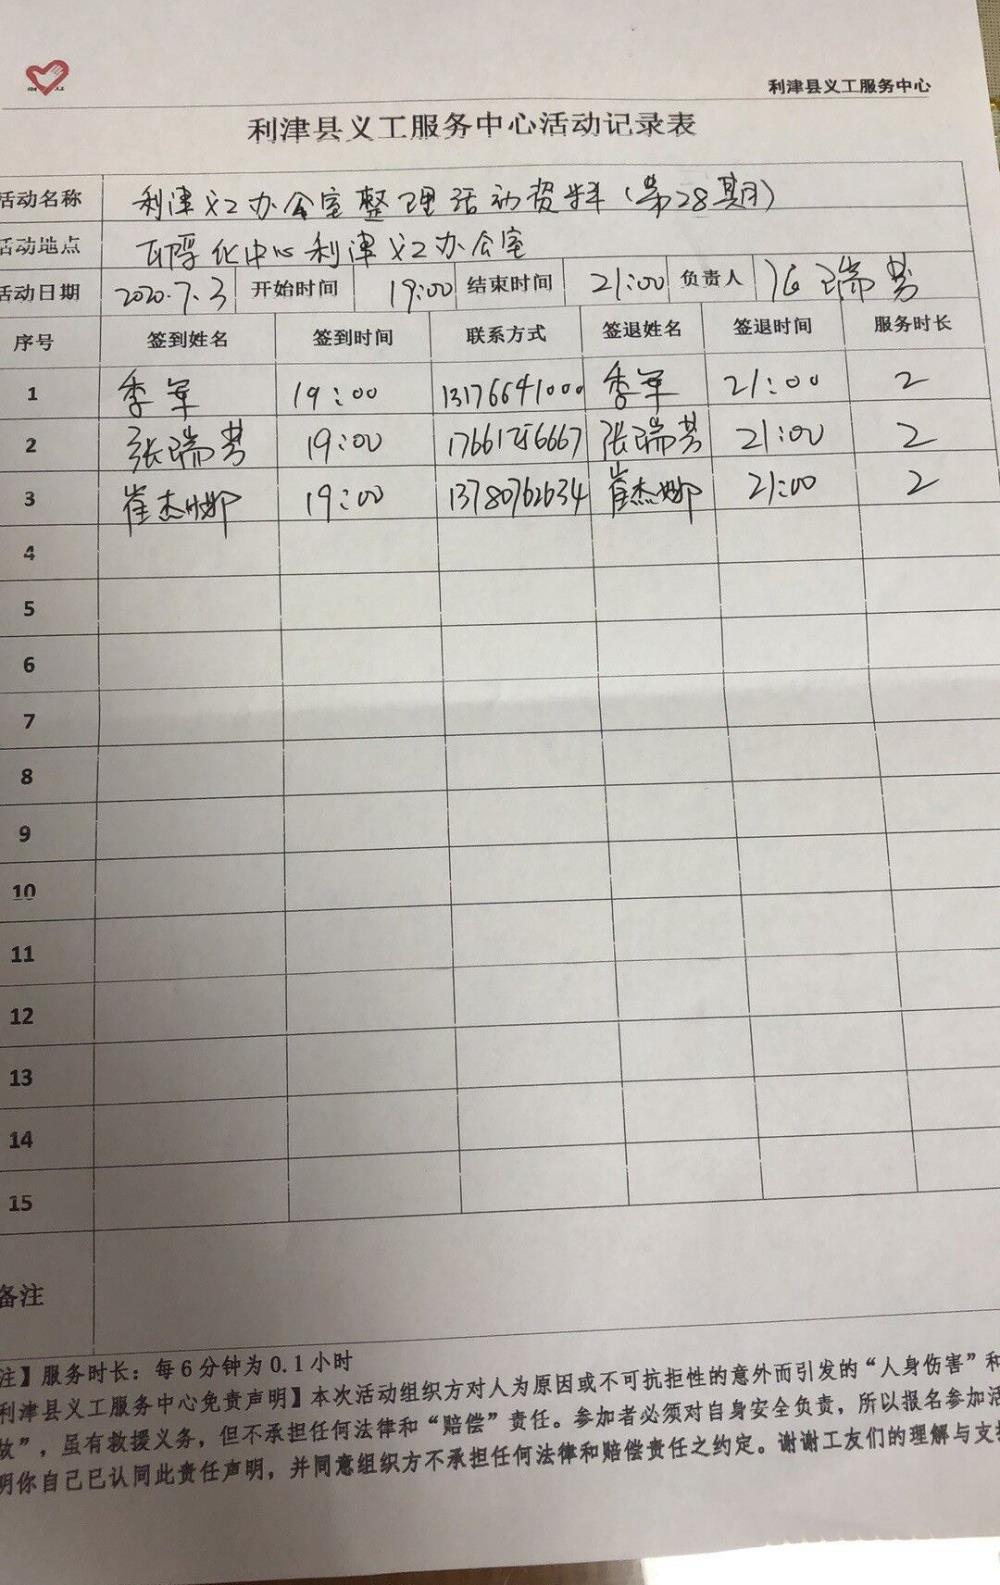 利津县义工服务中心
利津县义工服务中心活动记录表
活动名称 利津义工办公室整理活动资料(第28期)
活动地点 孵化中心利津义工办公室
活动日期 2020.7.3 开始时间 19:00 结束时间 21:00 负责人 张瑞芳
序号 签到姓名 签到时间 联系方式 签退姓名 签退时间 服务时长
1 季军 19:00 13176641000 季军 21:00 2
2 张瑞芳 19:00 张瑞芳 21:00 2
3 崔杰娜 19:00 13780762634 崔杰娜 21:00 2
4
5
6
7
8
9
10
11
12
13
14
15
备注
注】服务时长：每6分钟为0.1小时
利津县义工服务中心免责声明】本次活动组织方对人为原因或不可抗拒性的意外而引发的“人身伤害”和
故”，虽有救援义务，但不承担任何法律和“赔偿”责任。参加者必须对自身安全负责，所以报名参加活
明你自己已认同此责任声明，并同意组织方不承担任何法律和赔偿责任之约定。谢谢工友们的理解与支持